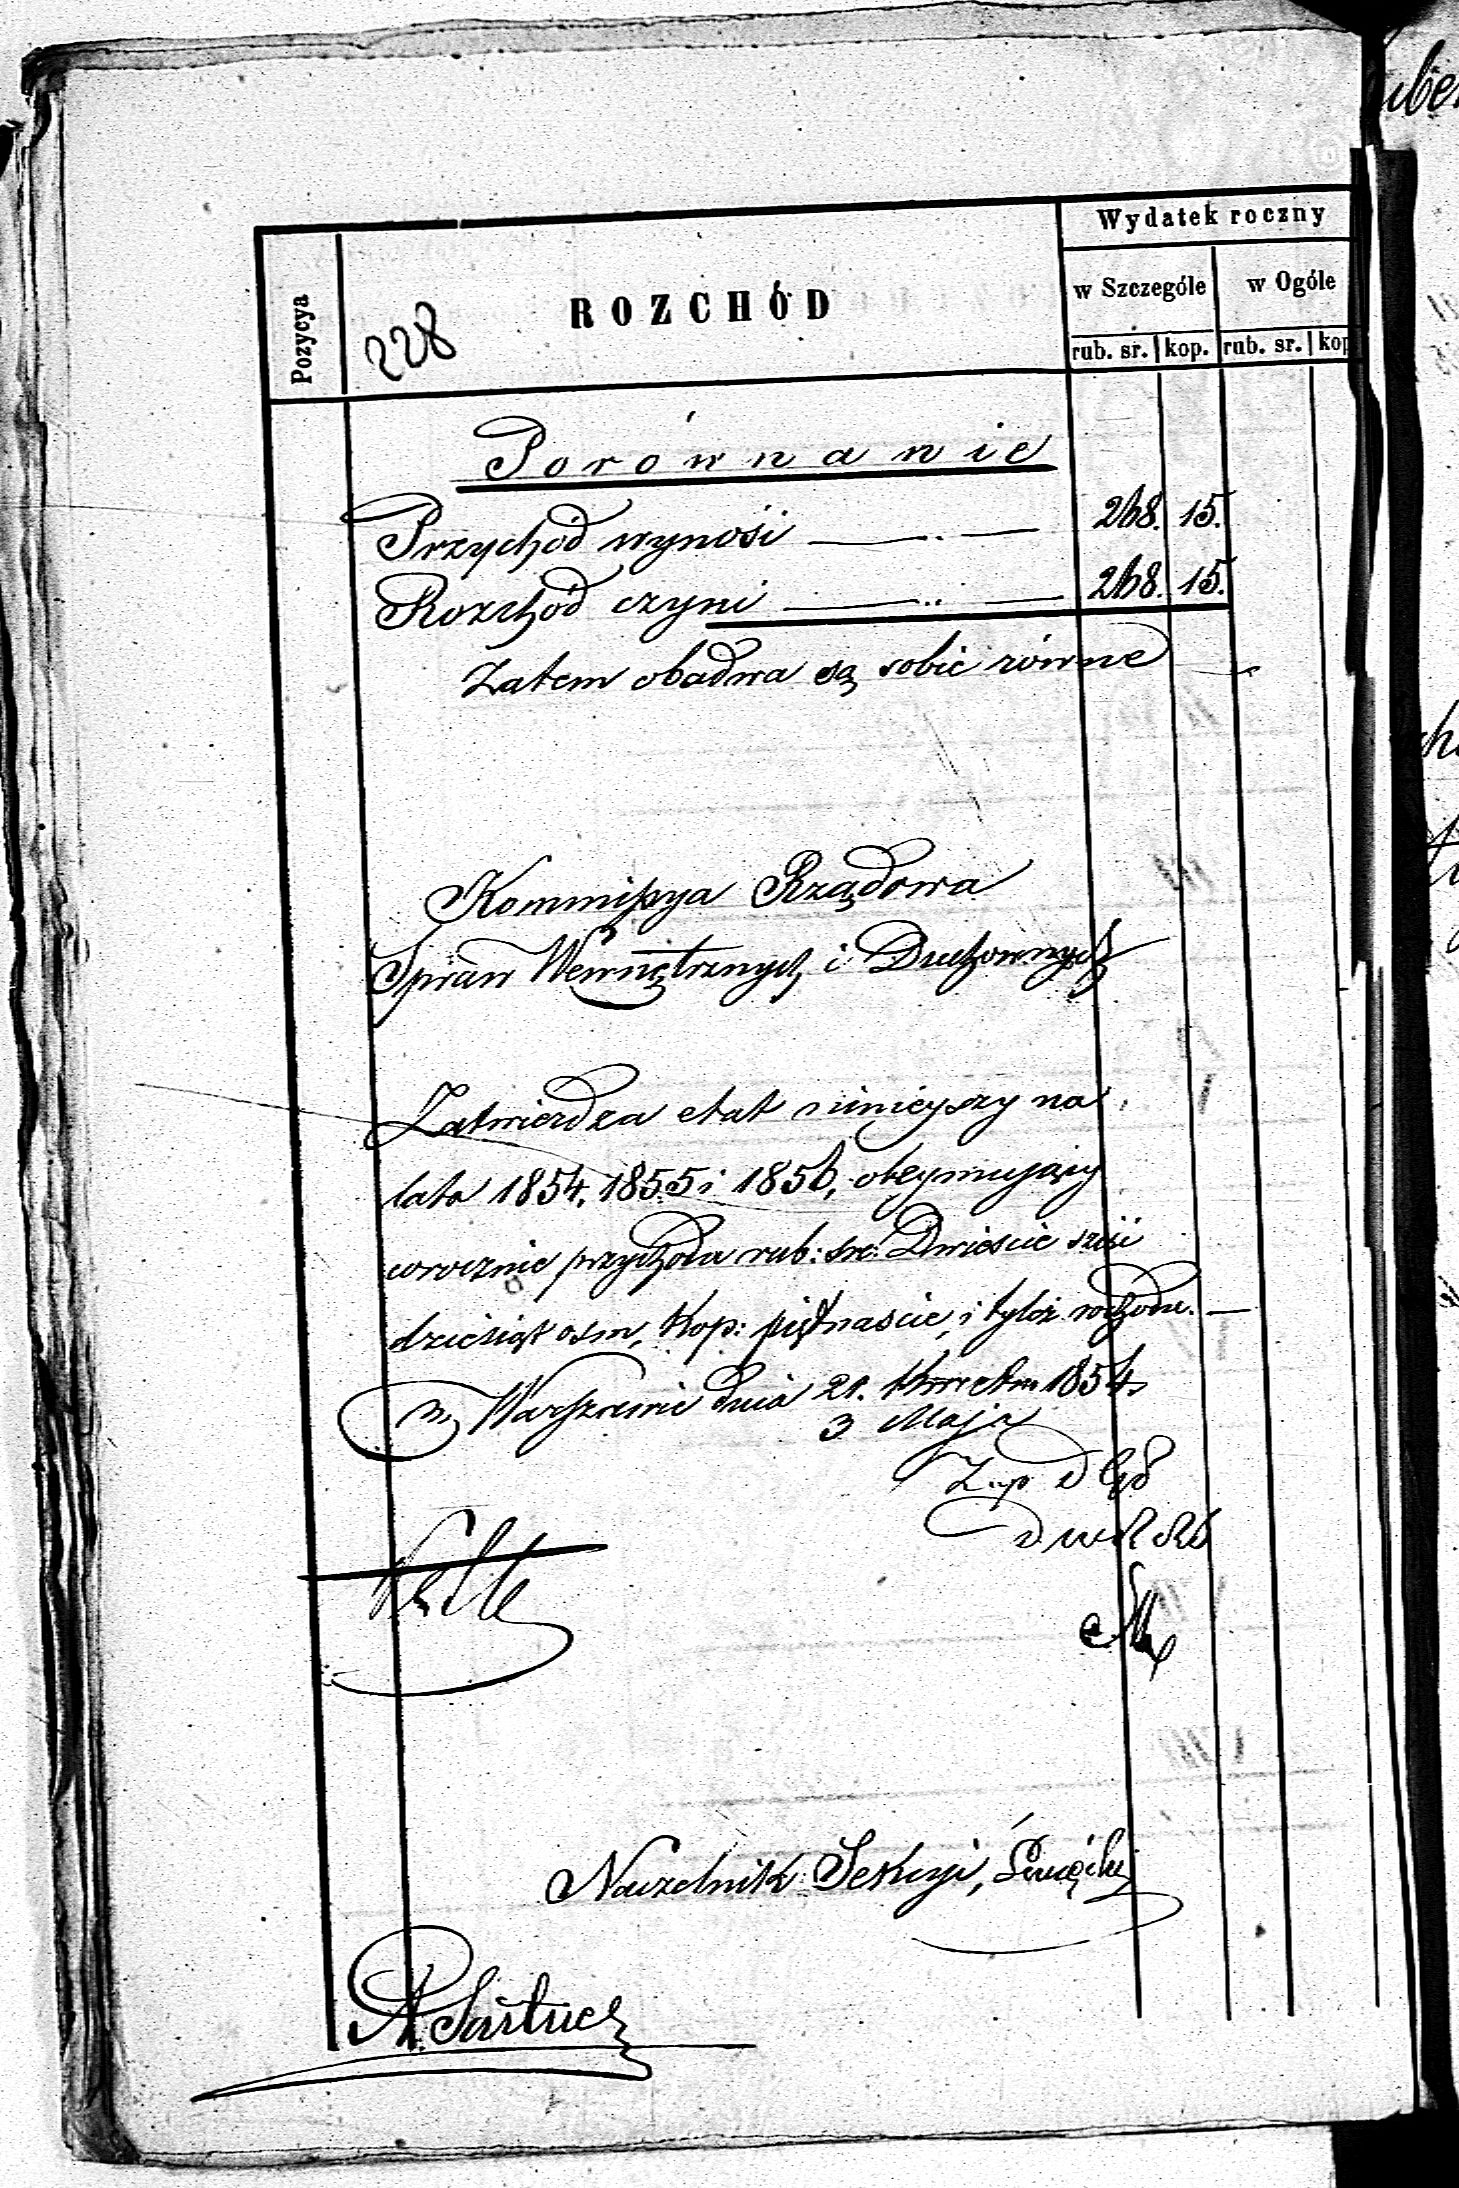 Wydatek roczny
Pozycya
228
ROZCHÓD
w Szczególe
w Ogóle
rub. sr. kop. rub. sr. kop
Porównanie
Przychód wynosi 268. 15.
Rozchód czyni 268. 15.
Zatem obadwa są sobie równe
Kommissya Rządowa
Spraw Wewnętrznych i Duchownych
Zatwierdza etat niniejszy na
lata 1854, 1855 i 1856, obejmujący
corocznie przychodu rub: sre: Dwieście sześć
dziesiąt ośm, Kop: piętnaście, i tyleż rozchodu.
w Warszawie dnia 21. Kwietnia 1854.
3 Maja
Naczelnik Sekcyi,